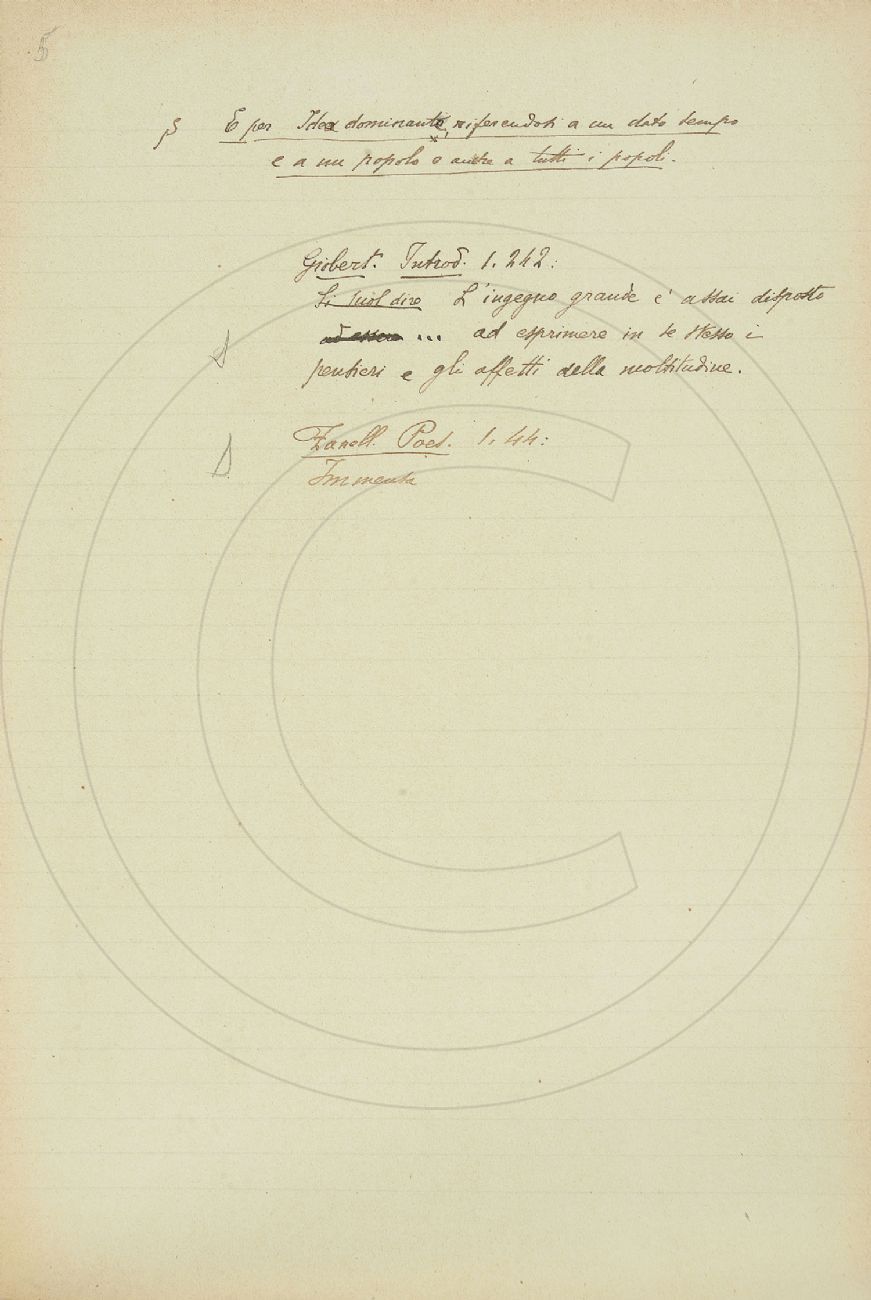 5
§ E per Idea dominante, riferendosi a un dato tempo
e a un popolo o anche a tutti i popoli.
Giobert. Introd. 1. 242:
Si suol dire L'ingegno grande è assai disposto
ad essere ... ad esprimere in se stesso i
pensieri e gli affetti della moltitudine.
Zanell. Poes. 1. 44:
Immensa